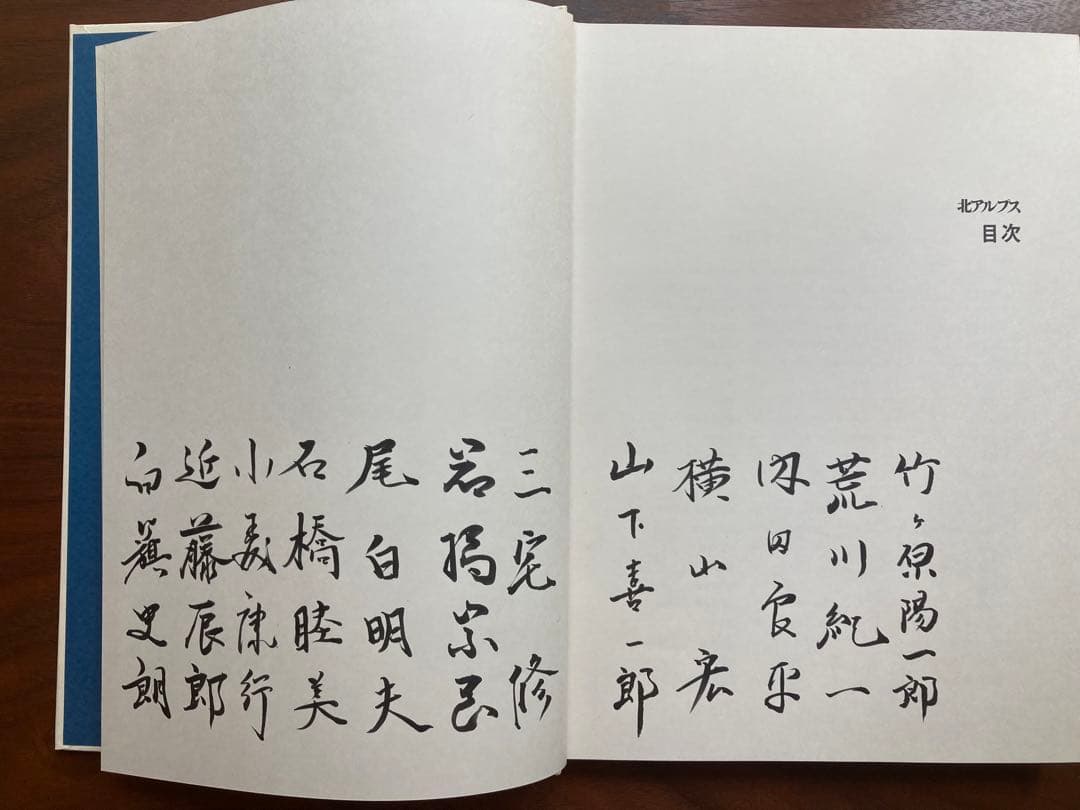 北アルプス
目次
竹ヶ原陽一郎
荒川紀一
内田良平
横山宏
山下喜一郎
三宅修
岩橋崇至
尾白明夫
石橋睦美
近藤辰郎
白籏史朗